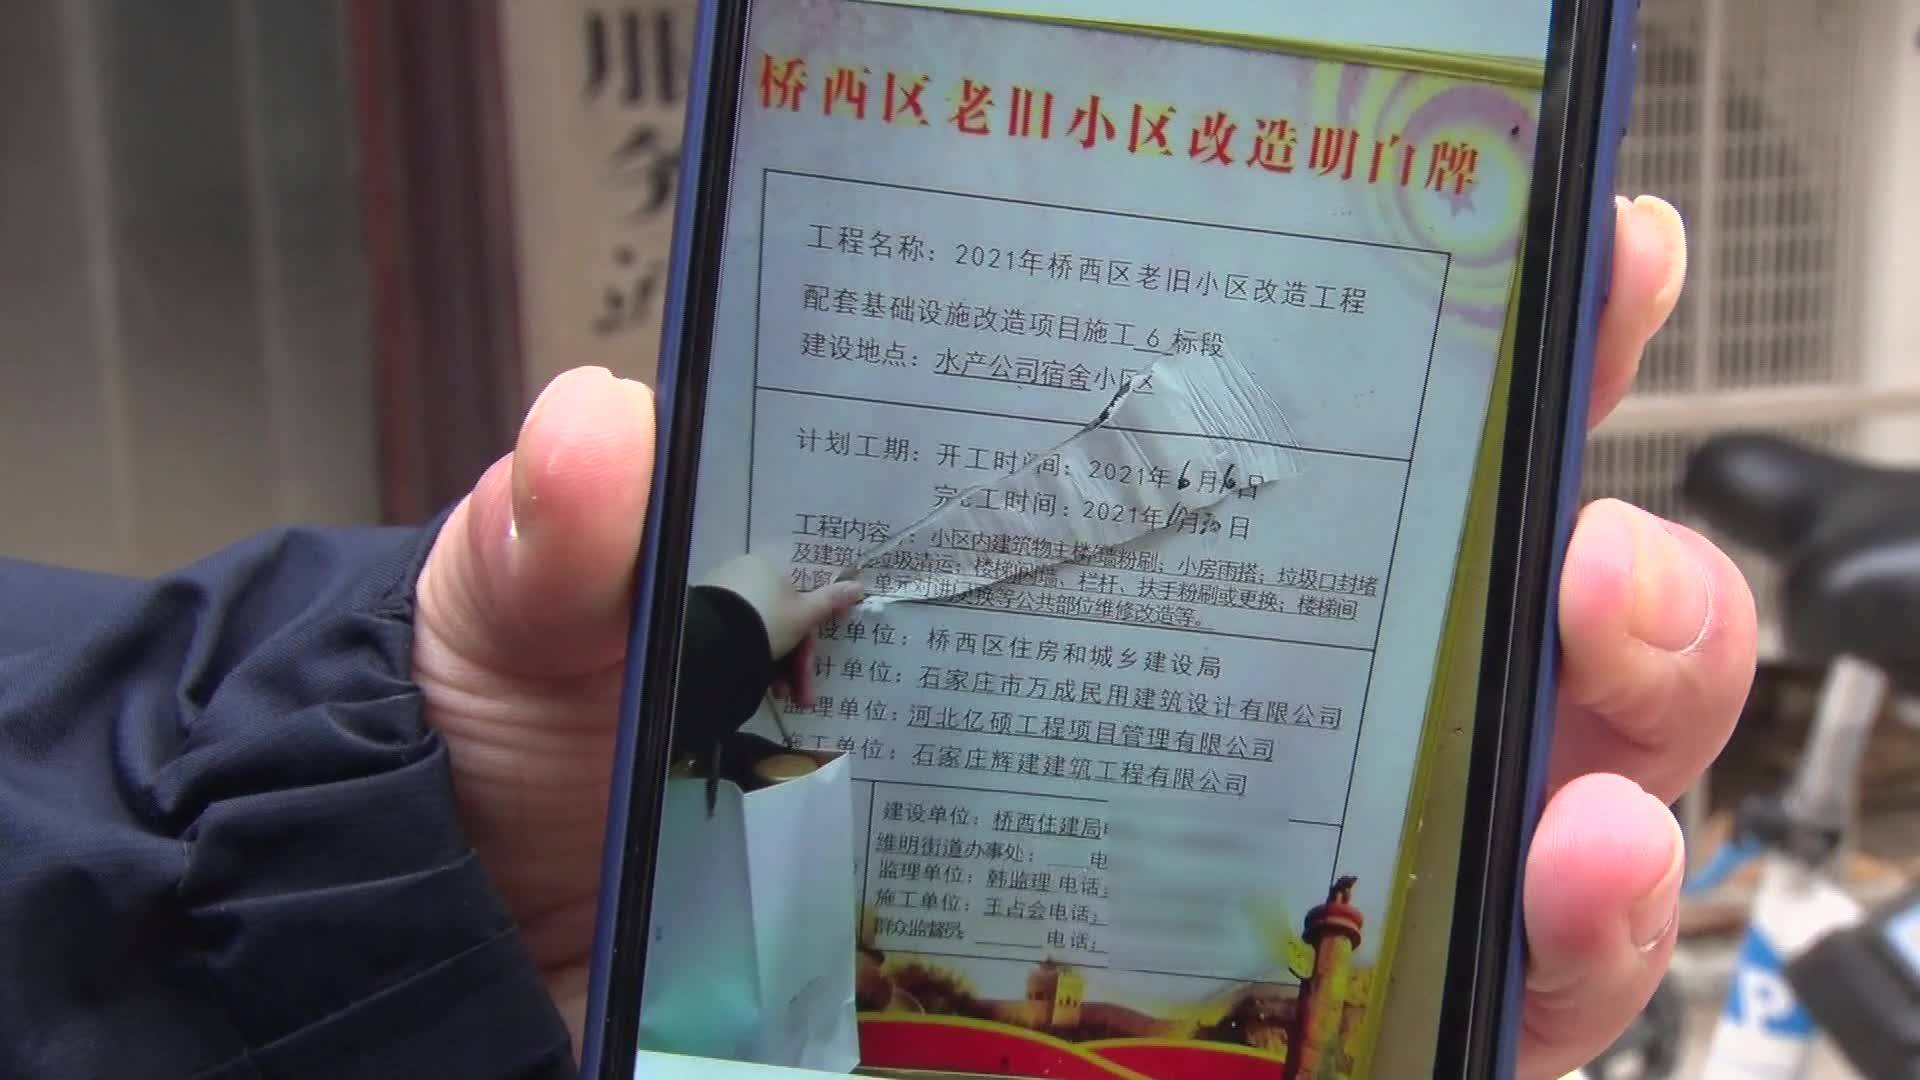 桥西区老旧小区改造明白牌
工程名称：2021年桥西区老旧小区改造工程
配套基础设施改造项目施工 6 标段
建设地点：水产公司宿舍小区
计划工期：开工时间：2021年6月6日
完工时间：2021年月30日
工程内容：小区内建筑物主楼墙粉刷；小房雨搭；垃圾口封堵
及建筑垃圾清运；楼梯间墙、栏杆、扶手粉刷或更换；楼梯间
外窗 单元对讲门更换等公共部位维修改造等。
设单位：桥西区住房和城乡建设局
计单位：石家庄市万成民用建筑设计有限公司
监理单位：河北亿硕工程项目管理有限公司
施工单位：石家庄辉建建筑工程有限公司
建设单位：桥西住建局
维明街道办事处： 电
监理单位：韩监理 电话：
施工单位：王占会电话：
群众监督员 电话：
服
务
P